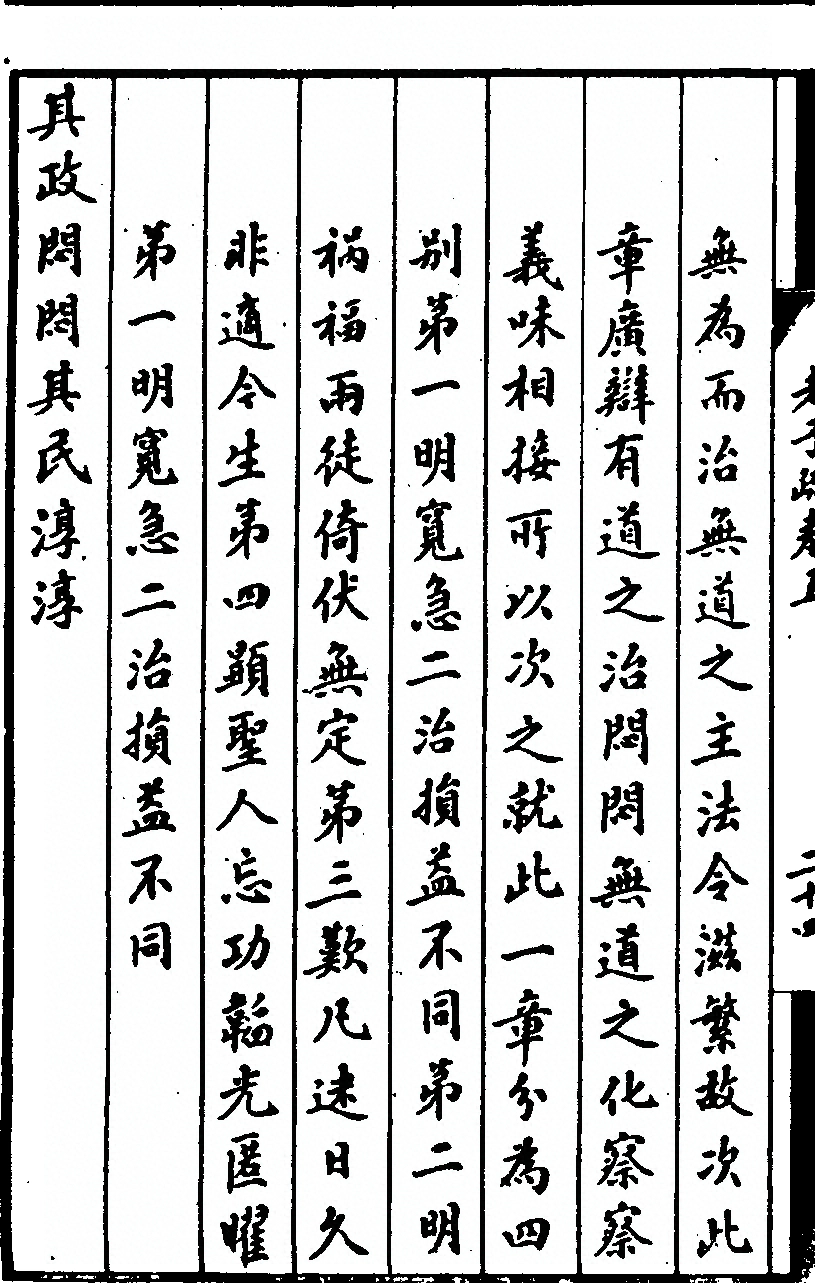 老子疏卷五
二十四
無為而治無道之主法令滋繁故次此
章廣辯有道之治悶悶無道之化察察
義味相接所以次之就此一章分為四
別第一明寬急二治損益不同第二明
禍福兩徒倚伏無定第三歎凡迷日久
非適今生第四顯聖人忘功韜光匿曜
第一明寬急二治損益不同
其政悶悶其民淳淳